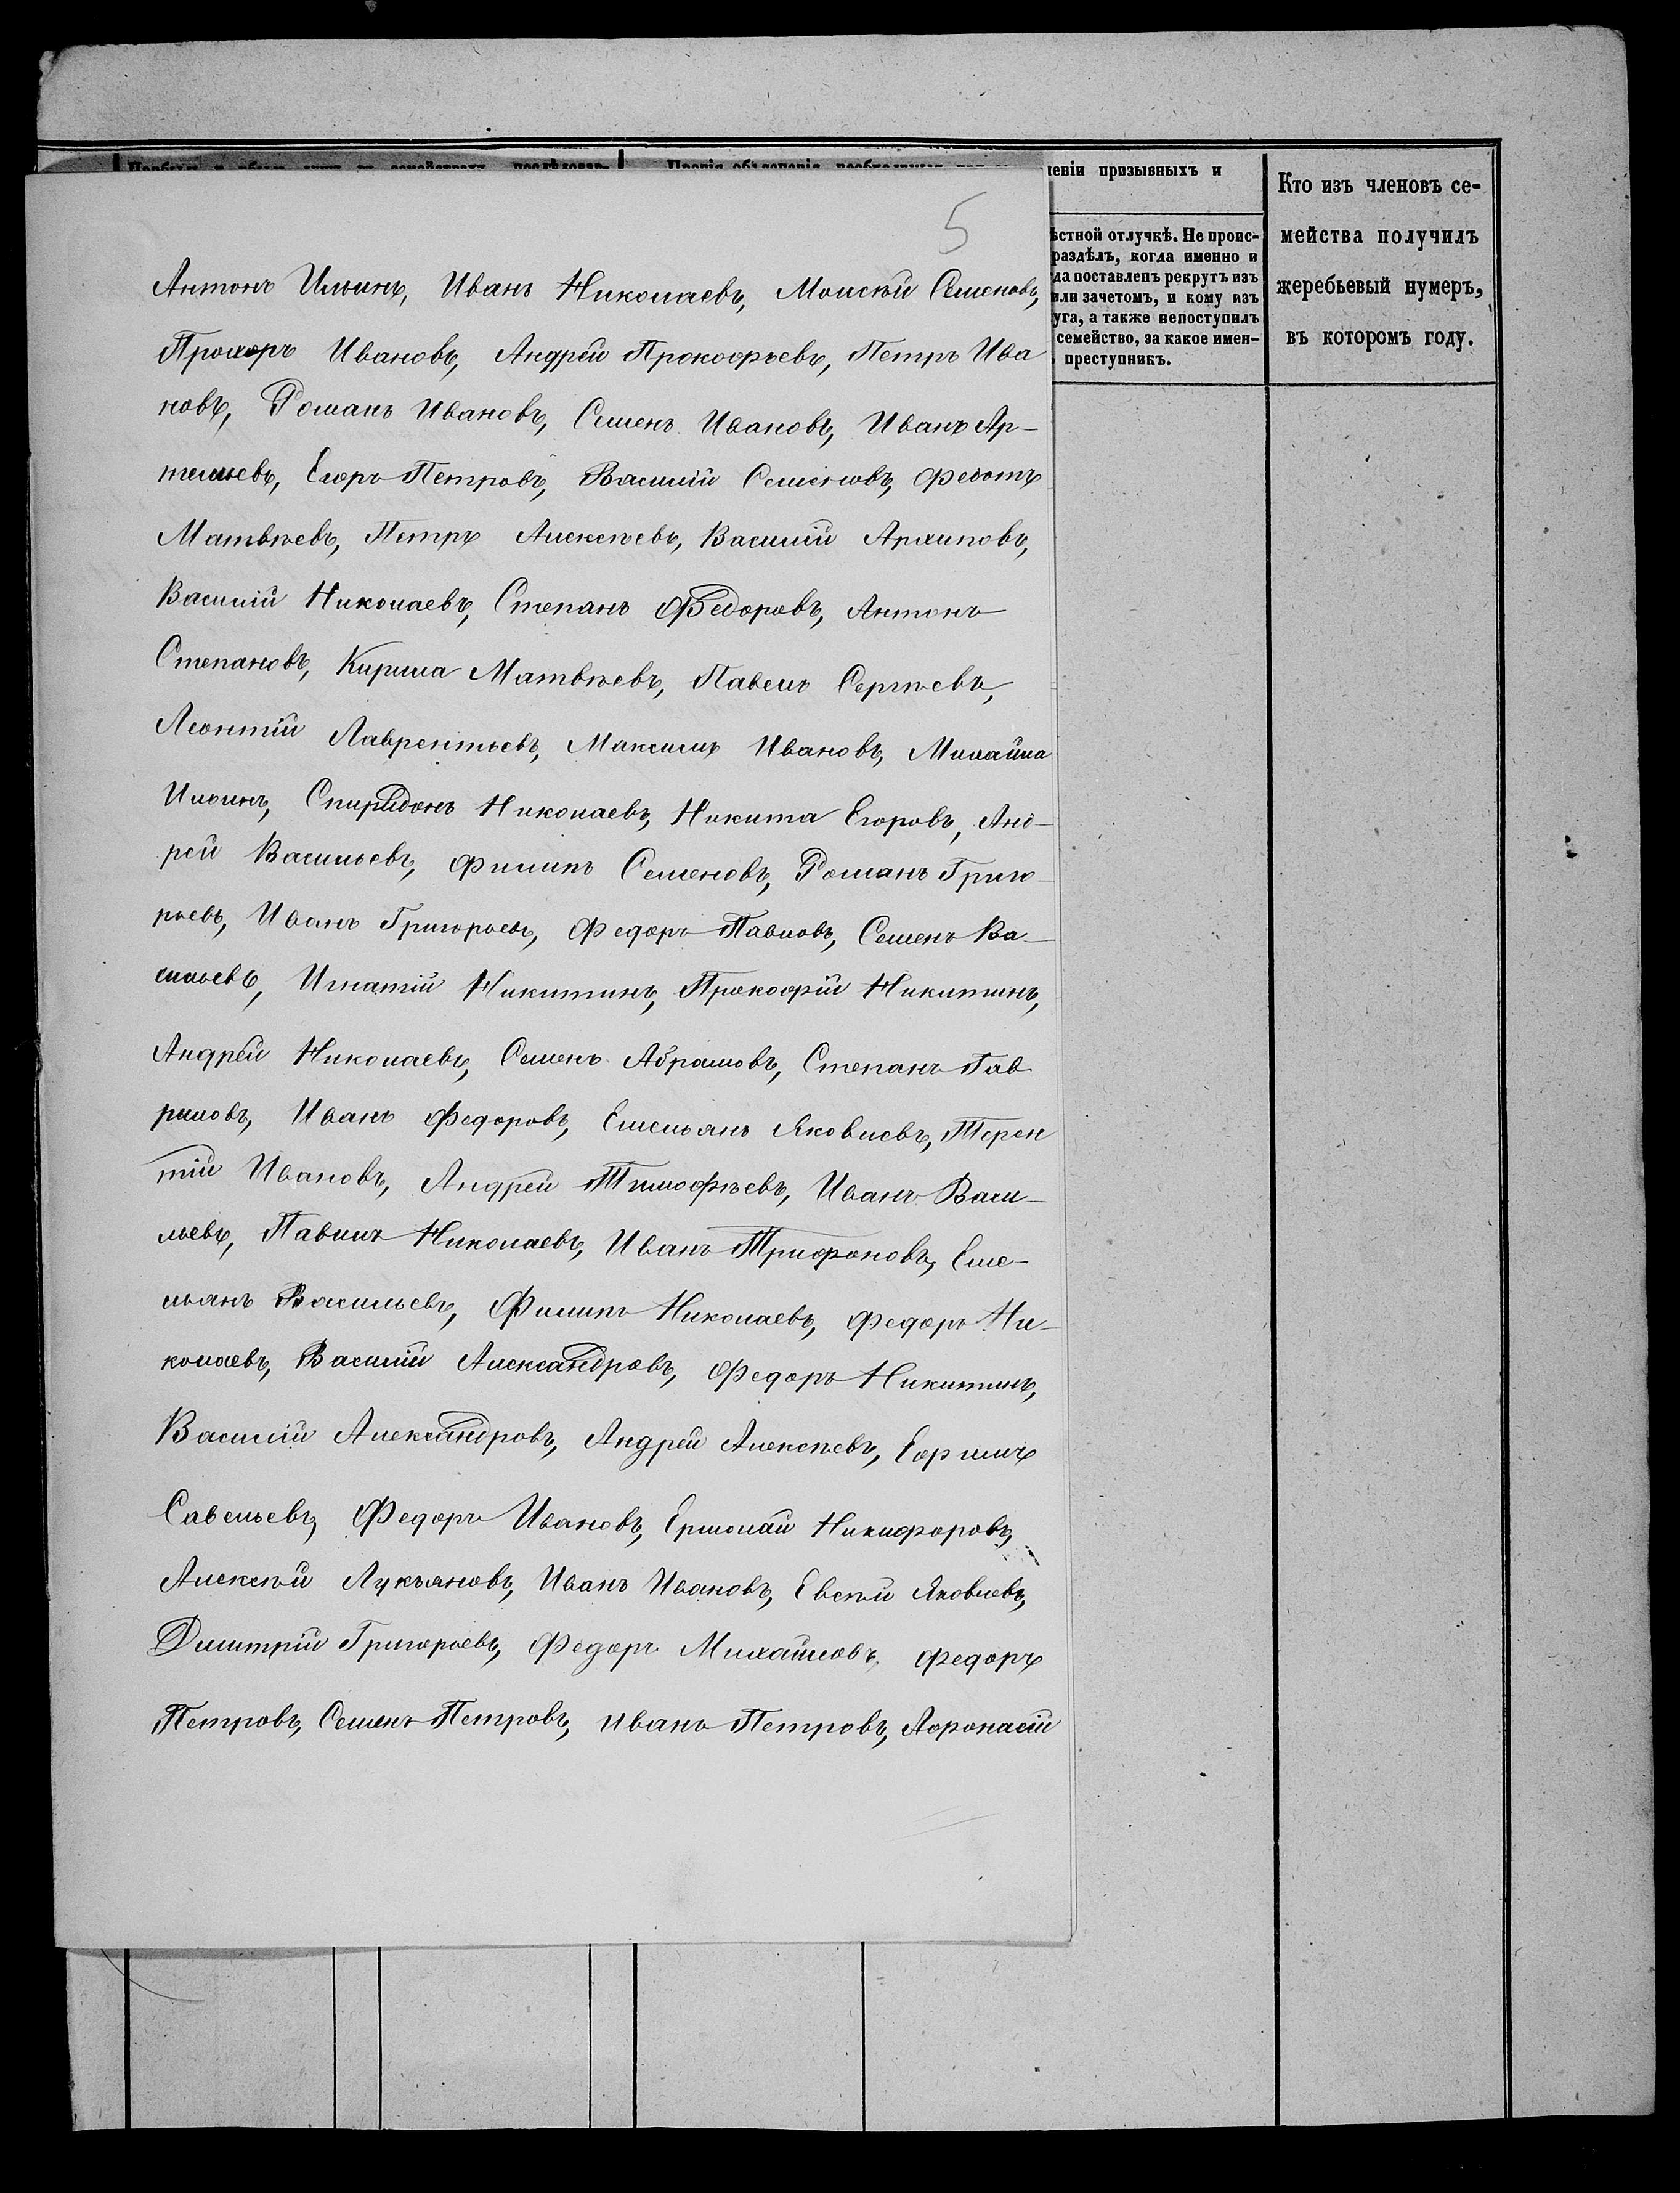 5
ленiи призывныхъ и
Кто изъ членовъ се-
мейства получилъ
жеребьевый нумеръ,
въ которомъ году.
ѣстной отлучкѣ. Не проис-
раздѣлъ, когда именно и
да поставленъ рекрутъ изъ
или зачетомъ, и кому изъ
уга, а также непоступилъ
семейство, за какое имен-
преступникъ.
Антонъ Ильинъ, Иванъ Николаевъ, Моисѣй Семеновъ,
Прохоръ Ивановъ, Андрей Прокофьевъ, Петръ Ива
новъ, Романъ Ивановъ, Семенъ Ивановъ, Иванъ Ар-
темьевъ, Егоръ Петровъ, Василiй Семеновъ, Федотъ
Матвѣевъ, Петръ Алексѣевъ, Василiй Архиповъ,
Василiй Николаевъ, Степанъ Федоровъ, Антонъ
Степановъ, Кирила Матвѣевъ, Павелъ Сергѣевъ,
Леонтiй Лаврентьевъ, Максимъ Ивановъ, Михайла
Ильинъ, Спиридонъ Николаевъ, Никита Егоровъ, Анд-
рей Васильевъ, Филипъ Семеновъ, Романъ Григо
рьевъ, Иванъ Григорьевъ, Федоръ Павловъ, Семенъ Ва-
сильевъ, Игнатiй Никитинъ, Прокофiй Никитинъ,
Андрей Николаевъ, Семенъ Абрамовъ, Степанъ Гав
риловъ, Иванъ Федоровъ, Емельянъ Яковлевъ, Терен
тiй Ивановъ, Андрей Тимофѣевъ, Иванъ Васи-
льевъ, Павилъ Николаевъ, Иванъ Трифоновъ, Еме-
льянъ Васильевъ, Филипъ Николаевъ, Федоръ Ни-
колаевъ, Василiй Александровъ, Федоръ Никитинъ,
Василiй Александровъ, Андрей Алексѣевъ, Ефримъ
Савельевъ, Федоръ Ивановъ, Ермолай Никифоровъ,
Алексѣй Лукьяновъ, Иванъ Ивановъ, Евсѣй Яковлевъ,
Дмитрiй Григорьевъ, Федоръ Михайловъ, Федоръ
Петровъ, Семенъ Петровъ, Иванъ Петровъ, Афонасiй